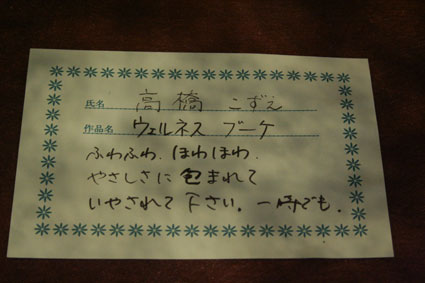 氏名 高橋 こずえ
作品名 ウェルネス ブーケ
ふわふわ、ほわほわ、
やさしさに包まれて
いやされて下さい。一時でも。